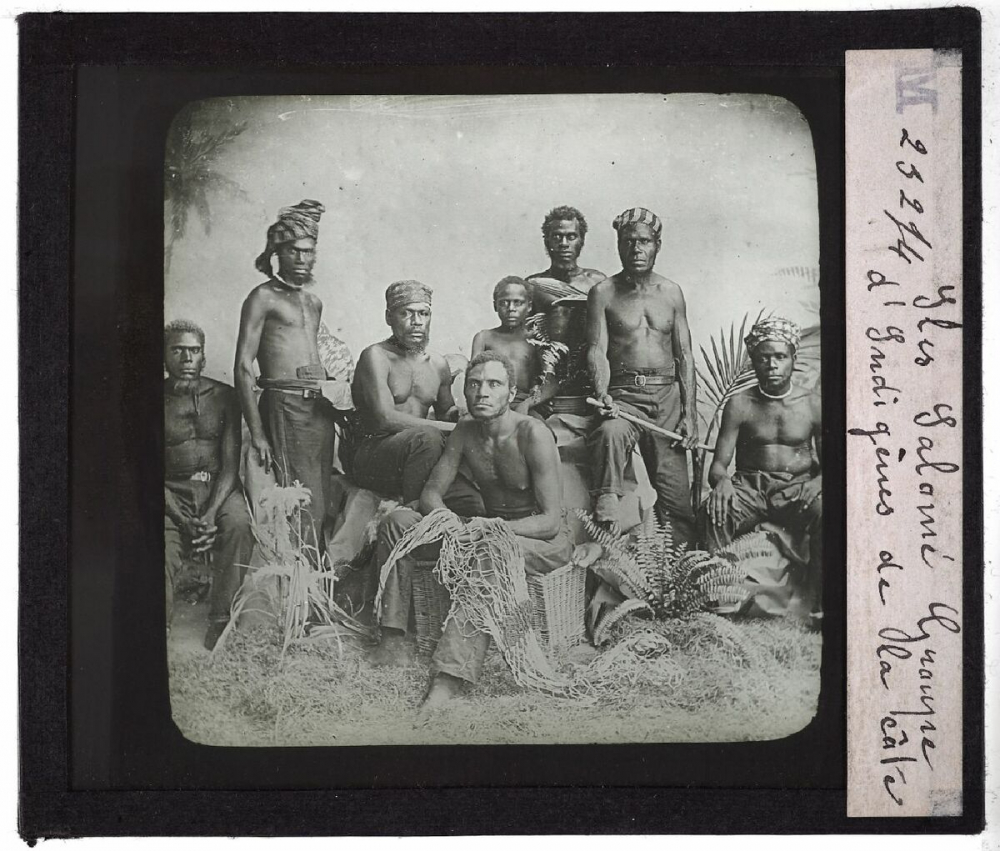 M
23274 Iles Salomé Groupe
d'Indigènes de la côte